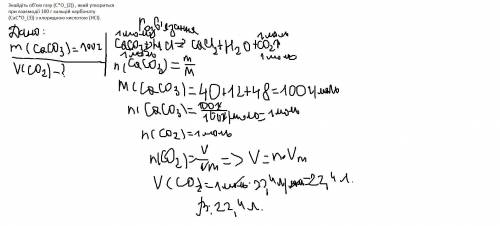 Знайдіть об'єм газу (C*O_{2}) , який утвориться
при взаємодії 100 г кальцій карбонату
(CaC*O_{3}) з хлоридною кислотою (HCl).
Дано:
m(CaCO₃)=100г
V(CO₂)-?
Розв'язання
1моль 1моль
CaCO₃+HCl=CaCl₂+H₂O+CO₂↑
1моль 1моль
n(CaCO₃)=m/M
M(CaCO₃)=40+12+48=100г/моль
n(CaCO₃)=100г/100г/моль=1моль
n(CO₂)=1моль
n(CO₂)=V/Vm=>V=n·Vm
V(CO₂)=1моль·22,4л/моль=22,4л.
22,4л.